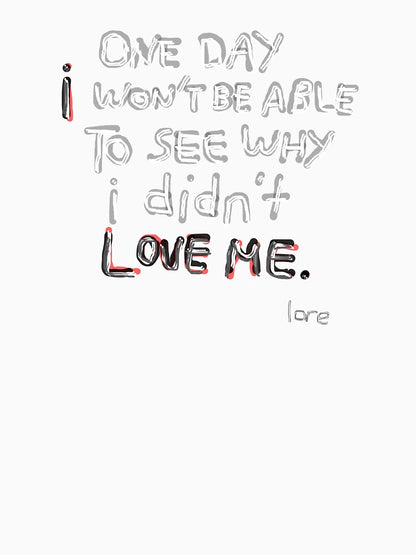 ONE DAY
i WON'T BE ABLE
TO SEE WHY
i didn't
LOVE ME.
lore